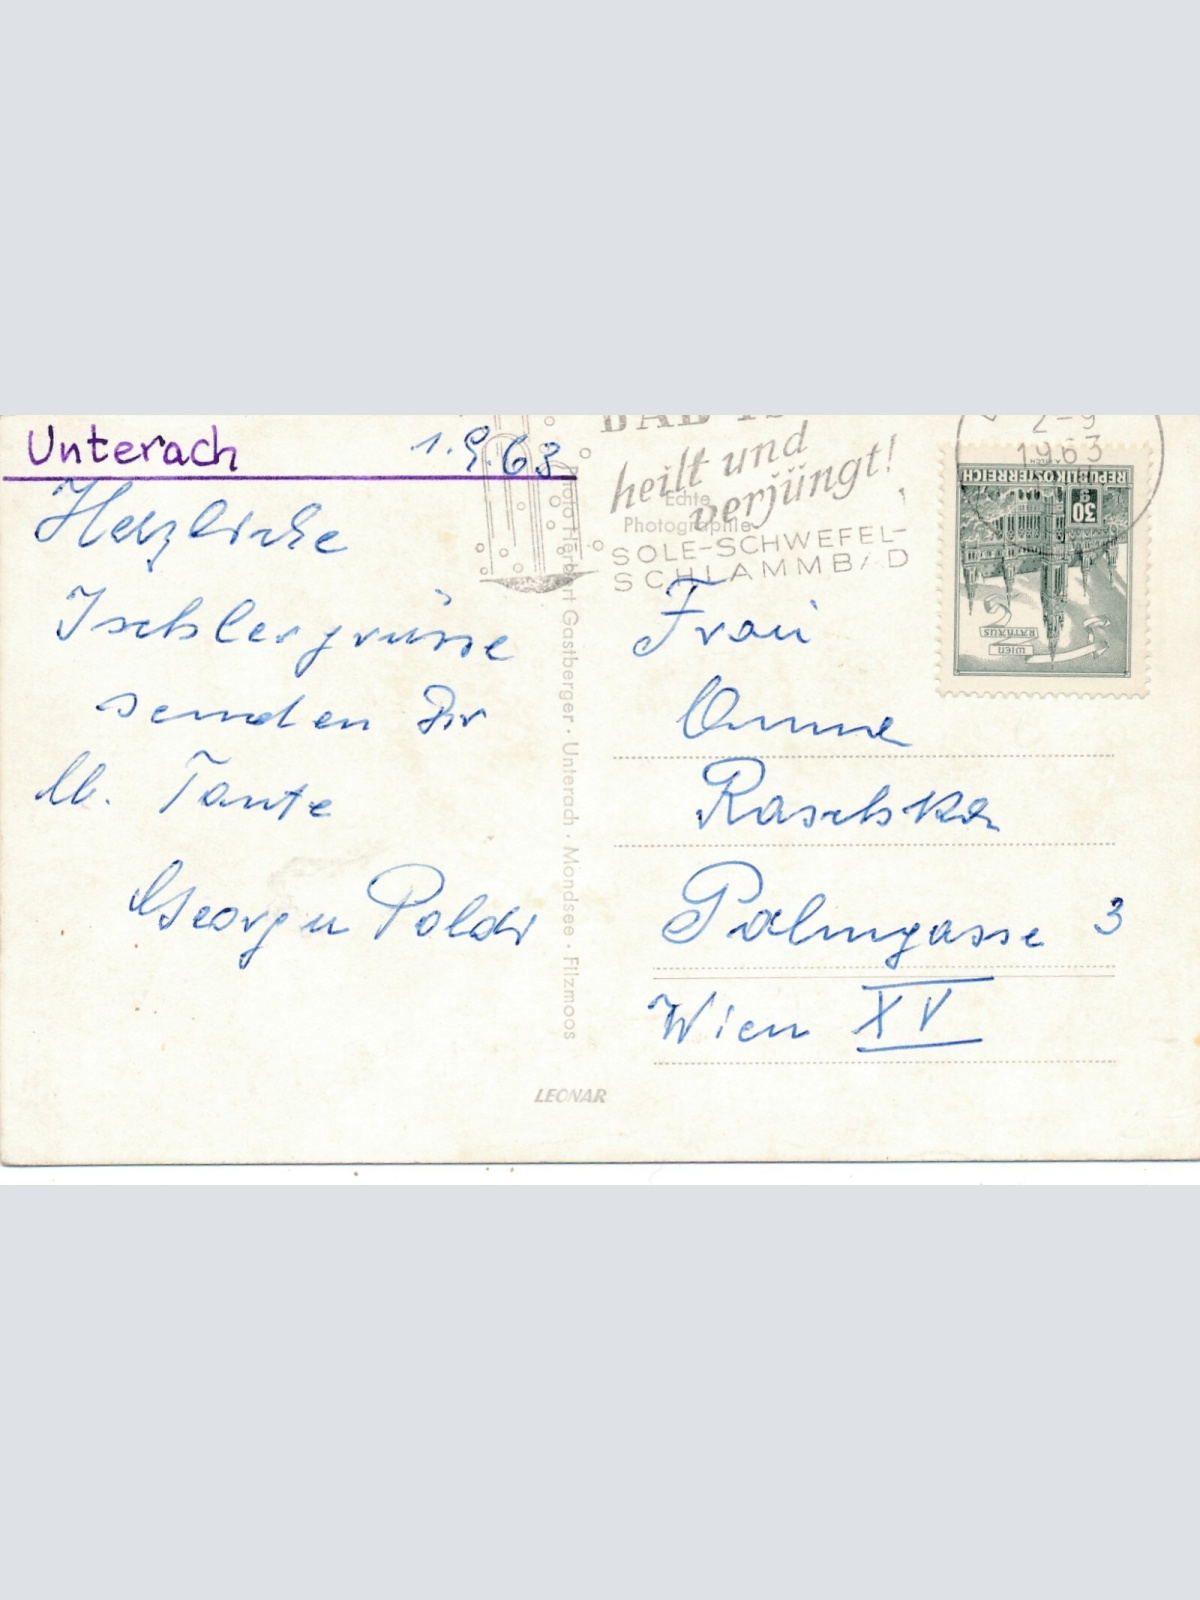 Unterach
1.9.63
Herzliche
Ischlergrüsse
senden Dir
lb. Tante
Georg u Poldi
BAD IS
heilt und
verjüngt!
SOLE-SCHWEFEL-
SCHLAMMBAD
Echte
Photographie
2-9
1963
REPUBLIK ÖSTERREICH
30 g
RATHAUS
WIEN
Photo Herbert Gastberger · Unterach · Mondsee · Filzmoos
Frau
Anna
Raschka
Palmgasse 3
Wien XV
LEONAR